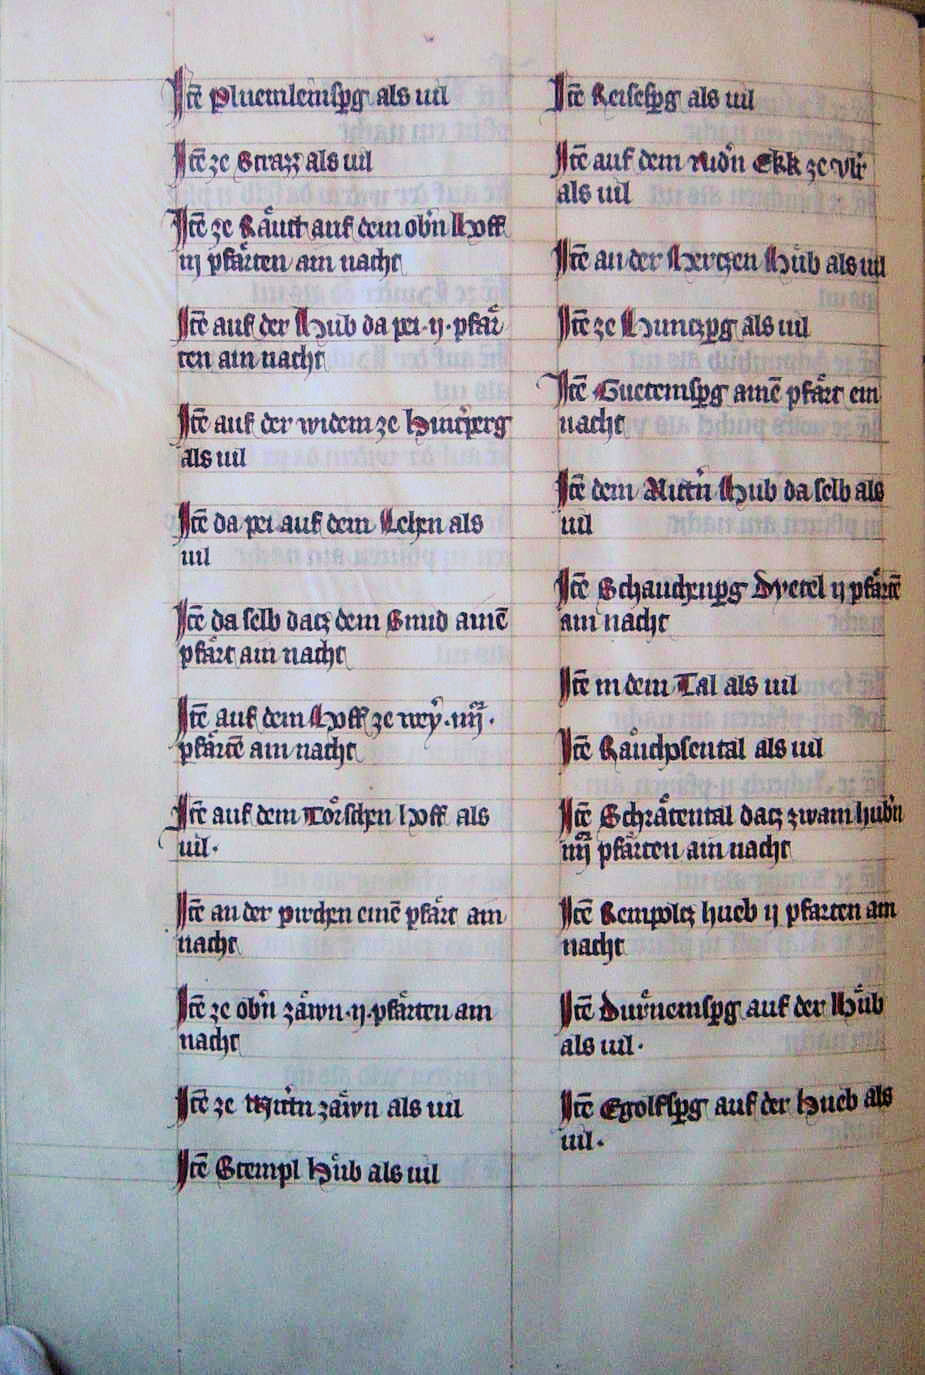 Itē pluemleinsp̄g als uil
Itē ze Strazz als uil
Itē ze Räutt auf dem obn̄ Hoff
iij pfärten am nacht
Itē auf der Hub da pei ·ij· pfär
ten ain nacht
Itē auf der widem ze
als uil
Itē da pei auf dem Lehen als
uil
Itē da selb datz dem Smid ainē
pfärt ain nacht
Itē auf dem Hoff ze wey̆ ·iiij·
pfärtē ain nacht
Itē auf dem Törschen hoff als
uil·
Itē an der pirchen einē pfärt ain
nacht
Itē ze obn̄ zäwn ·ij· pfärten ain
nacht
Itē ze zäwn als uil
Itē Stempl Hůb als uil
Itē Reisesp̄g als uil
Itē auf dem Nidn̄ Ekk ze
als uil
Itē an der Hertzen Hůb als uil
Itē ze Huntzp̄g als uil
Itē Guetemsp̄g ainē pfärt ein
nacht
Itē dem Mittn̄ Hub da selb als
uil
Itē Schauchenp̄g Dyetel ij pfärtē
ain nacht
Itē in dem Tal als uil
Itē Räuchpsental als uil
Itē Schrätental datz zwain hubn̄
iiij pfärten ain nacht
Itē Rempoltz hueb ij pfärten ain
nacht
Itē Durnemsp̄g auf der Hůb
als uil·
Itē Egolfsp̄g auf der Hueb als
uil·